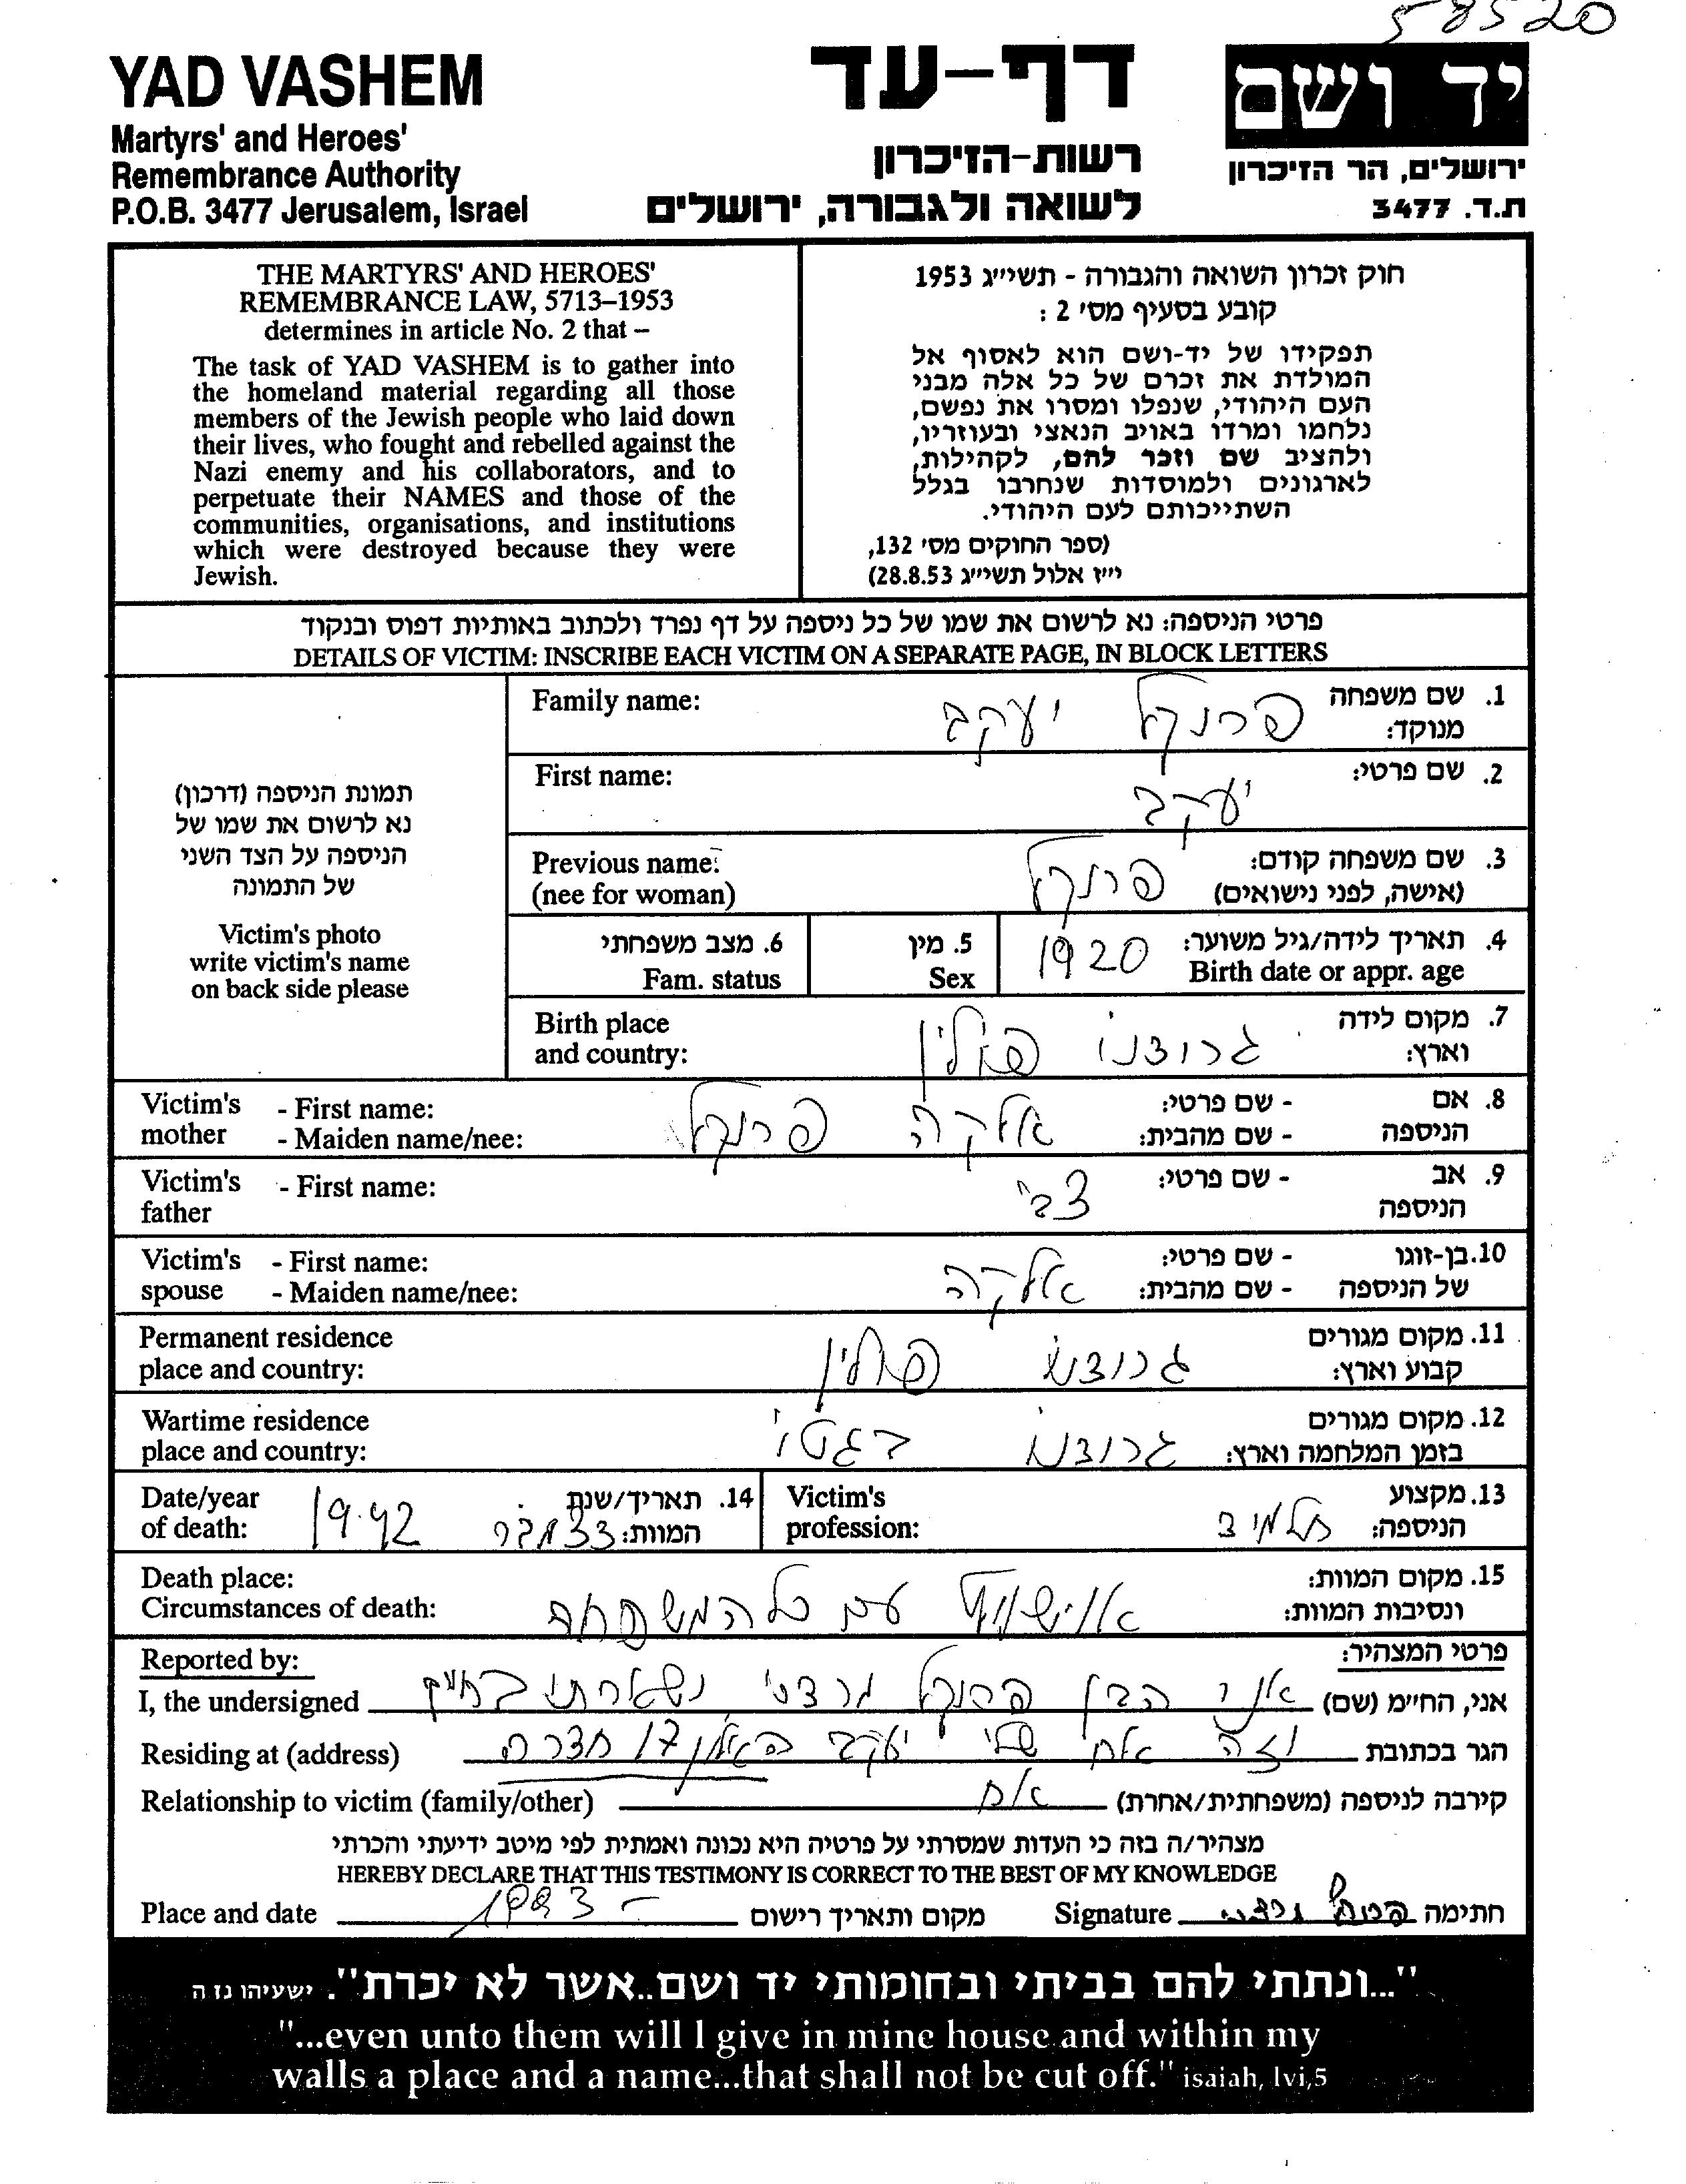 58520
YAD VASHEM
Martyrs' and Heroes'
Remembrance Authority
P.O.B. 3477 Jerusalem, Israel
דף-עד
רשות-הזיכרון
לשואה ולגבורה, ירושלים
יד ושם
ירושלים, הר הזיכרון
ת.ד. 3477
THE MARTYRS' AND HEROES'
REMEMBRANCE LAW, 5713–1953
determines in article No. 2 that –
The task of YAD VASHEM is to gather into
the homeland material regarding all those
members of the Jewish people who laid down
their lives, who fought and rebelled against the
Nazi enemy and his collaborators, and to
perpetuate their NAMES and those of the
communities, organisations, and institutions
which were destroyed because they were
Jewish.
חוק זכרון השואה והגבורה - תשי״ג 1953
קובע בסעיף מס׳ 2 :
תפקידו של יד-ושם הוא לאסוף אל
המולדת את זכרם של כל אלה מבני
העם היהודי, שנפלו ומסרו את נפשם,
נלחמו ומרדו באויב הנאצי ובעוזריו,
ולהציב שם וזכר להם, לקהילות,
לארגונים ולמוסדות שנחרבו בגלל
השתייכותם לעם היהודי.
(ספר החוקים מס׳ 132,
י״ז אלול תשי״ג 28.8.53)
פרטי הניספה: נא לרשום את שמו של כל ניספה על דף נפרד ולכתוב באותיות דפוס ובנקוד
DETAILS OF VICTIM: INSCRIBE EACH VICTIM ON A SEPARATE PAGE, IN BLOCK LETTERS
תמונת הניספה (דרכון)
נא לרשום את שמו של
הניספה על הצד השני
של התמונה
Victim's photo
write victim's name
on back side please
1. שם משפחה
מנוקד: פרנקל יעקב
Family name:
2. שם פרטי: יעקב
First name:
3. שם משפחה קודם: פרנקל
(אישה, לפני נישואים)
Previous name:
(nee for woman)
4. תאריך לידה/גיל משוער: 1920
Birth date or appr. age
5. מין
Sex
6. מצב משפחתי
Fam. status
7. מקום לידה
וארץ: גרודנו פולין
Birth place
and country:
8. אם - שם פרטי: אלקה
הניספה - שם מהבית: פרנקל
Victim's - First name:
mother - Maiden name/nee:
9. אב - שם פרטי: צבי
הניספה
Victim's - First name:
father
10. בן-זוגו - שם פרטי: אלקה
של הניספה - שם מהבית:
Victim's - First name:
spouse - Maiden name/nee:
11. מקום מגורים
קבוע וארץ: גרודנו פולין
Permanent residence
place and country:
12. מקום מגורים
בזמן המלחמה וארץ: גרודנו בגטו
Wartime residence
place and country:
13. מקצוע
הניספה: תלמיד
Victim's
profession:
14. תאריך/שנת
המוות: דצמבר 1942
Date/year
of death:
15. מקום המוות:
ונסיבות המוות: עם כל המשפחה
Death place:
Circumstances of death:
פרטי המצהיר:
Reported by:
אני, החי״מ (שם) אני פרנקל נשארתי בחיים
I, the undersigned
הגר בכתובת וזה אח שלי יעקב 17 חדרה
Residing at (address)
קירבה לניספה (משפחתית/אחרת) אח
Relationship to victim (family/other)
מצהיר/ה בזה כי העדות שמסרתי על פרטיה היא נכונה ואמתית לפי מיטב ידיעתי והכרתי
HEREBY DECLARE THAT THIS TESTIMONY IS CORRECT TO THE BEST OF MY KNOWLEDGE
Place and date 1993 מקום ותאריך רישום Signature פרנקל חתימה
"...ונתתי להם בביתי ובחומותי יד ושם..אשר לא יכרת". ישעיהו נז ה
"...even unto them will I give in mine house and within my
walls a place and a name...that shall not be cut off." isaiah, lvi,5